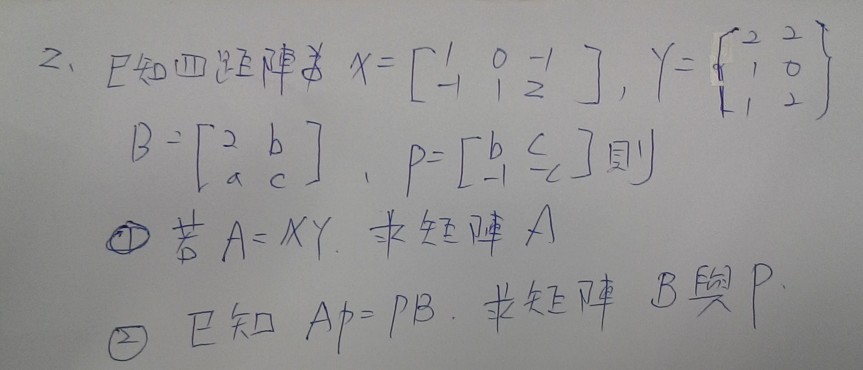 2、已知四距陣為 X=[1 0 -1 ], Y=[2 2
-1 1 2 1 0
1 2]
B=[2 b ], P=[b c ]則
a c -1 -c
① 若 A=XY. 求矩陣 A
② 已知 AP=PB. 求矩陣 B與P.